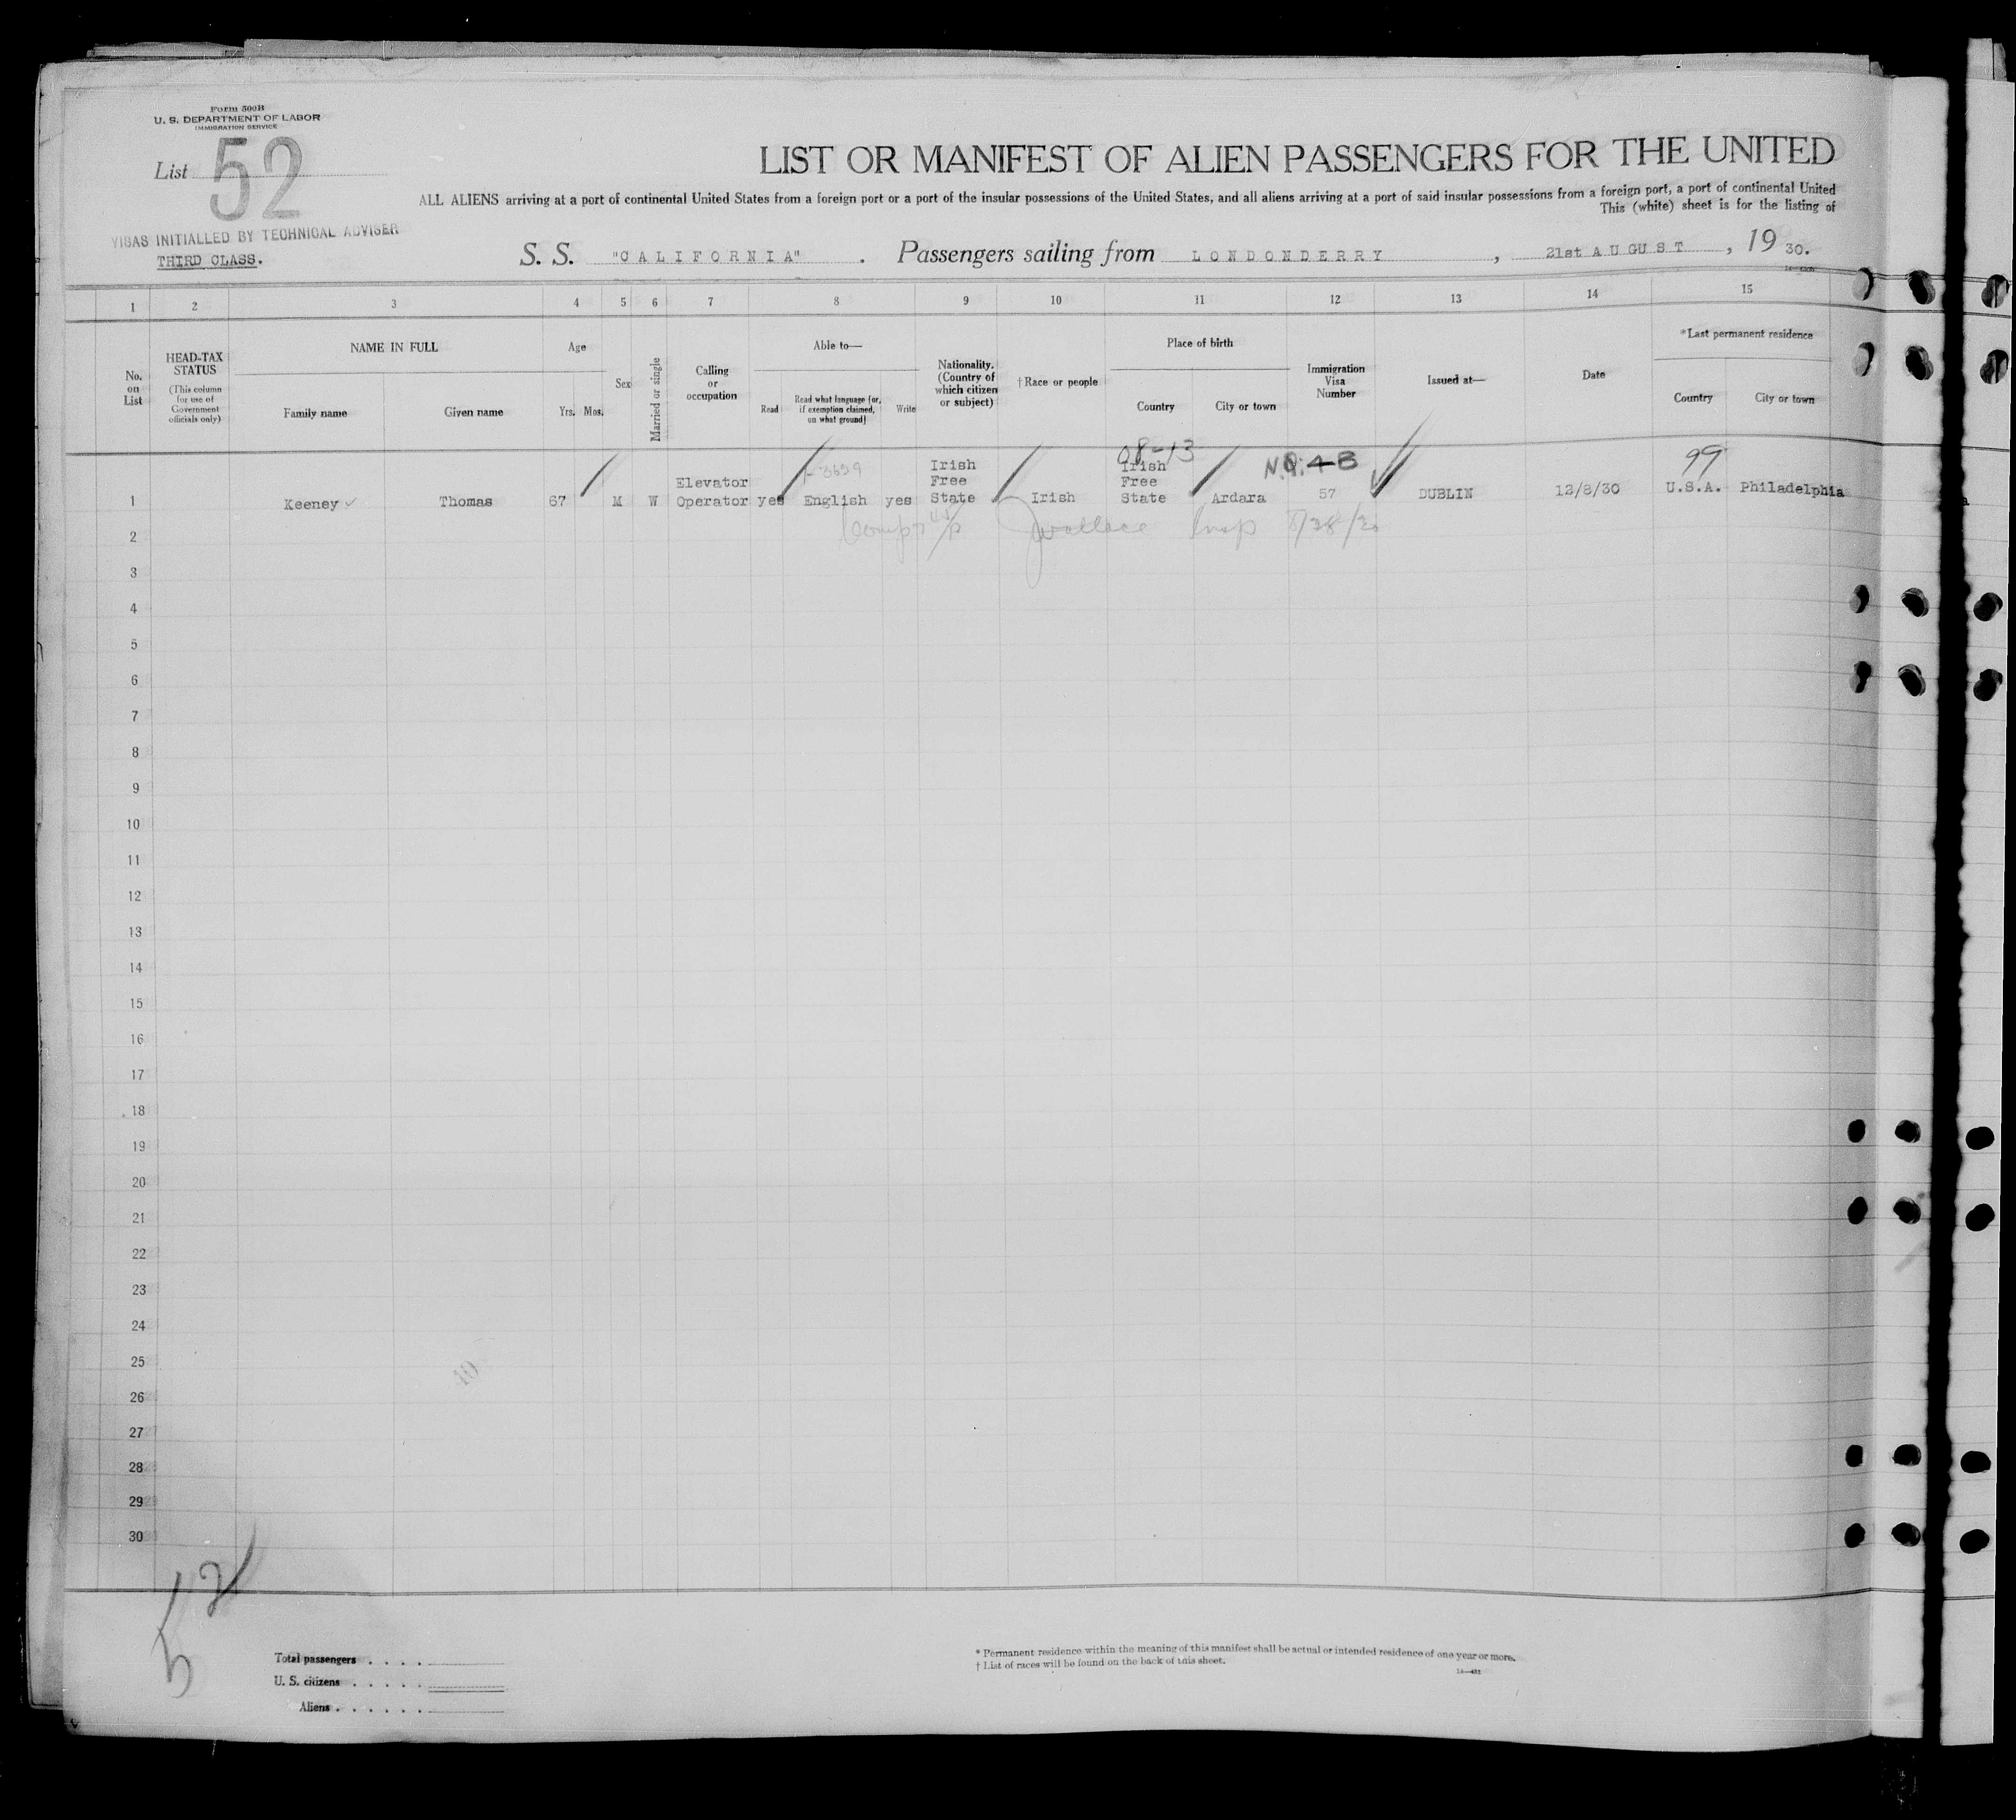 Form 500B
U. S. DEPARTMENT OF LABOR
IMMIGRATION SERVICE
List 52
VISAS INITIALLED BY TECHNICAL ADVISER
THIRD CLASS.
LIST OR MANIFEST OF ALIEN PASSENGERS FOR THE UNITED
ALL ALIENS arriving at a port of continental United States from a foreign port or a port of the insular possessions of the United States, and all aliens arriving at a port of said insular possessions from a foreign port, a port of continental United
This (white) sheet is for the listing of
S. S. "CALIFORNIA" . Passengers sailing from LONDONDERRY , 21st AUGUST , 19 30.
1 2 3 4 5 6 7 8 9 10 11 12 13 14 15
No. on List
HEAD-TAX STATUS
(This column for use of Government officials only)
NAME IN FULL
Family name Given name
Age
Yrs. Mos.
Sex
Married or single
Calling or occupation
Able to—
Read
Read what language [or, if exemption claimed, on what ground]
Write
Nationality. (Country of which citizen or subject)
†Race or people
Place of birth
Country City or town
Immigration Visa Number
Issued at—
Date
*Last permanent residence
Country City or town
08-13
99
1 Keeney Thomas 67 M W Elevator Operator yes English yes Irish Free State Irish Irish Free State Ardara 57 DUBLIN 12/8/30 U.S.A. Philadelphia
2
3
4
5
6
7
8
9
10
11
12
13
14
15
16
17
18
19
20
21
22
23
24
25
26
27
28
29
30
52
Total passengers . . . .
U. S. citizens . . . . .
Aliens . . . . . .
* Permanent residence within the meaning of this manifest shall be actual or intended residence of one year or more.
† List of races will be found on the back of this sheet.